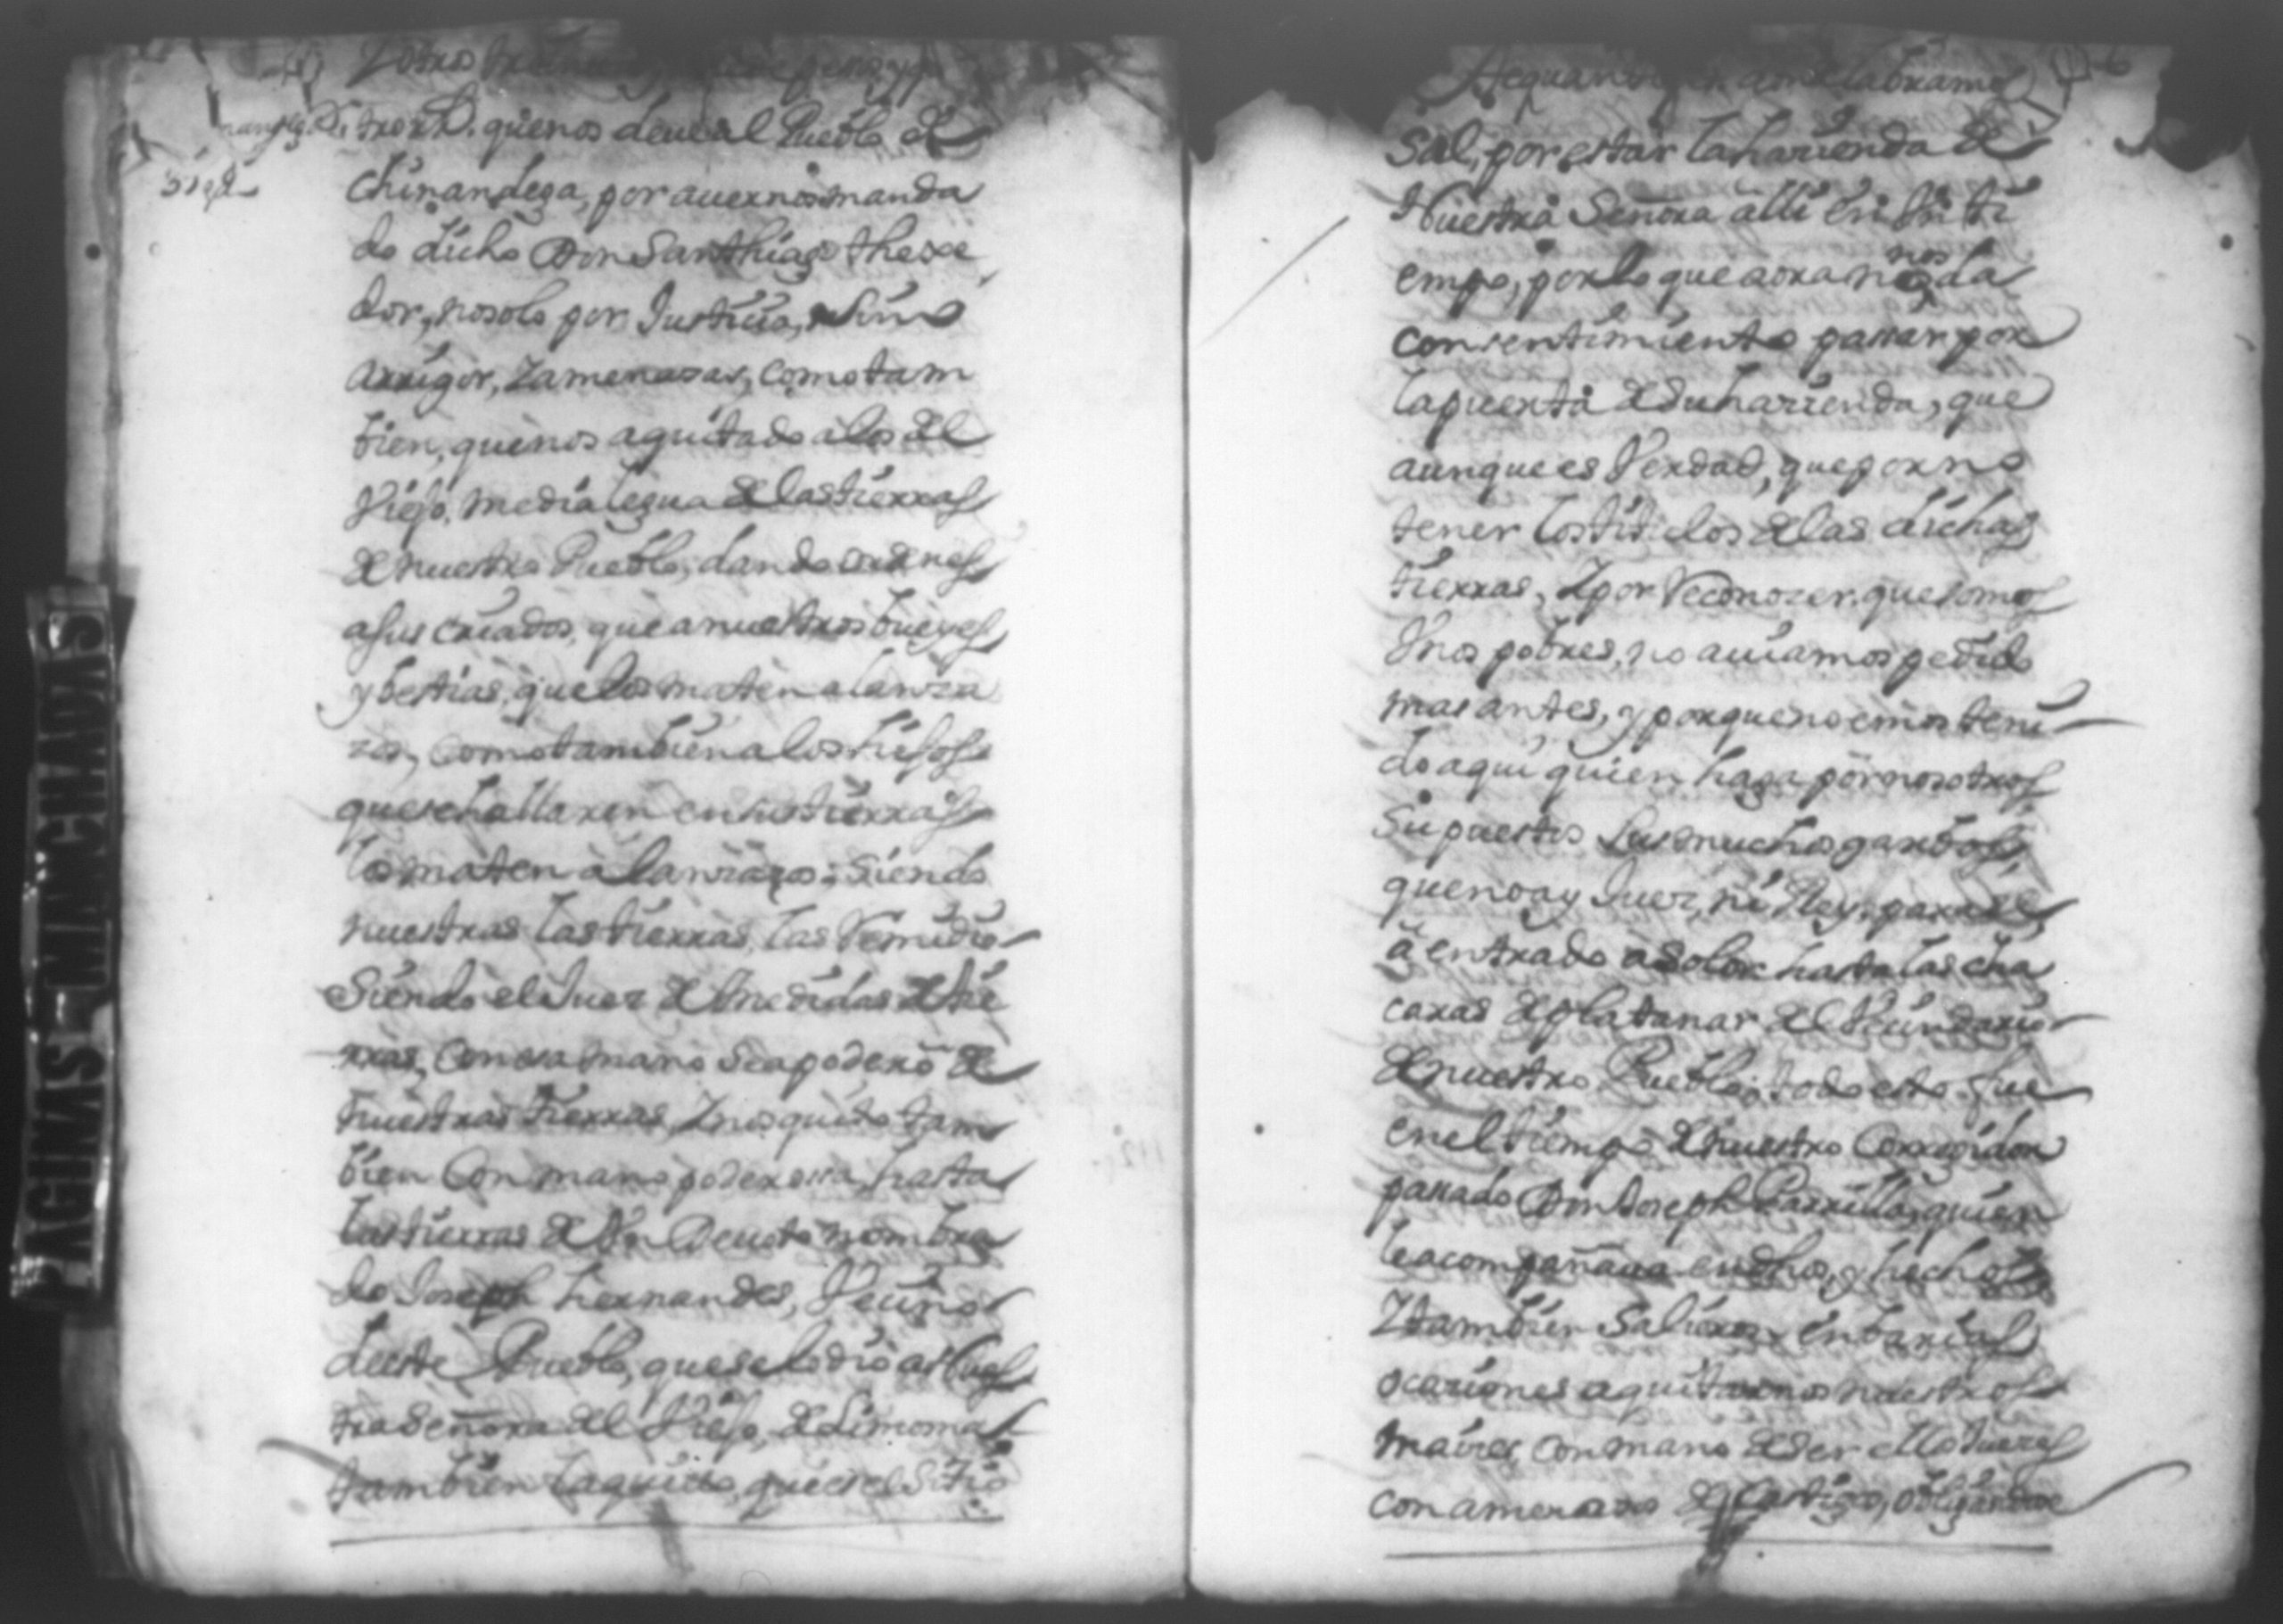 Zotro
que nos deue al Pueblo de
31 q̃
Chinandega, por auernos manda
do dicho Don Santhiago theze
dor, no solo por Justicia, sino
arrigor, Zamenazas, como tam
bien, que nos a quitado a los del
Viejo, media legua de las tierras
de nuestro Pueblo, dando ordenes
a sus criados, que a nuestros bueyes
y bestias, que los maten a lanza
zos, como tambien a los hijos
que se hallaren en sus tierras
los maten a lanzazos; siendo
nuestras las tierras, las
Siendo el Juez de medidas de tie
rras, con esa mano se apoderò de
nuestras tierras, Znos quito tam
bien Con mano poderossa, hasta
las tierras de Vn Deuoto nombra
do Joseph hernandes, Vecino
deeste Pueblo, que se lo dio a Nues
tra Señora del Viejo, de Limosna
tambien la quito, que es el Sitio
PAGINAS MANCHADAS
labramos
Sal, por estar la hazienda de
Nuestra Señora alli en su ti
empo, por lo que aora no nos da
consentimiento passar por
la puerta de su hazienda, que
aunque es Verdad, que por no
tener los titulos de las dichas
tierras, Zpor Reconozer que somos
Vnos pobres, no auiamos pedido
mas antes, y porque no emos teni
do aqui quien haga por nosotros
Supuesto sus muchos
que no ay Juez, ni Rey, para el,
a entrado asolar hasta las cha
caras de platanar del Vecindario
de nuestro Pueblo; todo esto fue
en el tiempo de nuestro Corregidor
passado Don Joseph Parrilla, quien
le acompañaua en dhos, y hechos
Ztambien Salieron en barias
ocaziones a quitarnos nuestros
maizes, con mano de ser ellos Juezes
con amenazas de Castigo, obligandose